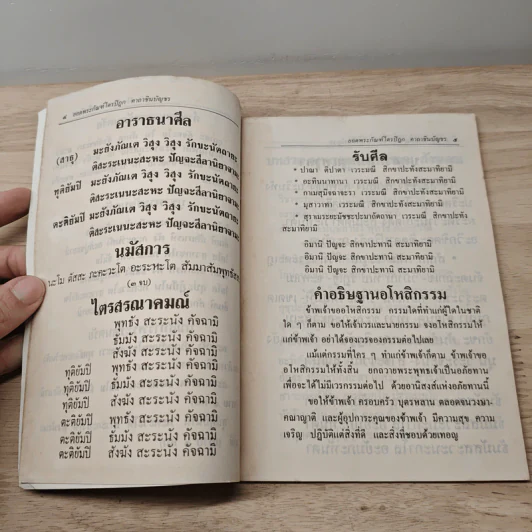 ๔ ยอดพระกัณฑ์ไตรปิฎก : คาถาชินบัญชร
อาราธนาศีล
(สาธุ) มะยังภัณเต วิสุง วิสุง รักขะนัตถายะ
ติสะระเณนะสะหะ ปัญจะสีลานิยาจามะ
ทุติยัมปิ มะยังภัณเต วิสุง วิสุง รักขะนัตถายะ
ติสะระเณนะสะหะ ปัญจะสีลานิยาจามะ
ตะติยัมปิ มะยังภัณเต วิสุง วิสุง รักขะนัตถายะ
ติสะระเณนะสะหะ ปัญจะสีลานิยาจามะ
นมัสการ
นะโม ตัสสะ ภะคะวะโต อะระหะโต สัมมาสัมพุทธัสสะ
(๓ จบ)
ไตรสรณาคมณ์
พุทธัง สะระนัง คัจฉามิ
ธัมมัง สะระนัง คัจฉามิ
สังฆัง สะระนัง คัจฉามิ
ทุติยัมปิ พุทธัง สะระนัง คัจฉามิ
ทุติยัมปิ ธัมมัง สะระนัง คัจฉามิ
ทุติยัมปิ สังฆัง สะระนัง คัจฉามิ
ตะติยัมปิ พุทธัง สะระนัง คัจฉามิ
ตะติยัมปิ ธัมมัง สะระนัง คัจฉามิ
ตะติยัมปิ สังฆัง สะระนัง คัจฉามิ
ยอดพระกัณฑ์ไตรปิฎก : คาถาชินบัญชร ๕
รับศีล
* ปาณา ติปาตา เวระมณี สิกขาปะทังสะมาทิยามิ
* อะทินนาทานา เวระมณี สิกขาปะทังสะมาทิยามิ
* กาเมสุมิจฉาจะรา เวระมณี สิกขาปะทังสะมาทิยามิ
* มุสาวาทา เวระมณี สิกขาปะทังสะมาทิยามิ
* สุราเมระยะมัชชะปะมาทัตถานา เวระมณี สิกขาปะทัง
สะมาทิยามิ
อิมานิ ปัญจะ สิกขาปะทานิ สะมาทิยามิ
อิมานิ ปัญจะ สิกขาปะทานิ สะมาทิยามิ
อิมานิ ปัญจะ สิกขาปะทานิ สะมาทิยามิ
คำอธิษฐานอโหสิกรรม
ข้าพเจ้าขออโหสิกรรม กรรมใดที่ทำแก่ผู้ใดในชาติ
ใด ๆ ก็ตาม ขอให้เจ้าเวรและนายกรรม จงอโหสิกรรมให้
แก่ข้าพเจ้า อย่าได้จองเวรจองกรรมต่อไปเลย
แม้แต่กรรมที่ใคร ๆ ทำแก่ข้าพเจ้าก็ตาม ข้าพเจ้าขอ
อโหสิกรรมให้ทั้งสิ้น ยกถวายพระพุทธเจ้าเป็นอภัยทาน
เพื่อจะได้ไม่มีเวรกรรมต่อไป ด้วยอานิสงส์แห่งอภัยทานนี้
ขอให้ข้าพเจ้า ครอบครัว บุตรหลาน ตลอดจนวงษา
คณาญาติ และผู้อุปการะคุณของข้าพเจ้า มีความสุข ความ
เจริญ ปฏิบัติแต่สิ่งที่ดี และสิ่งที่ชอบด้วยเทอญ